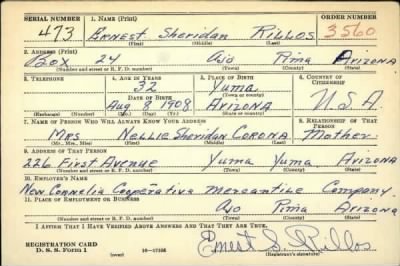 SERIAL NUMBER 1. NAME (Print) ORDER NUMBER
473 ERNEST Sheridan RILLOS 3560
(First) (Middle) (Last)
2. ADDRESS (Print)
Box 24 Ajo Pima Arizona
(Number and street or R. F. D. number) (Town) (County) (State)
3. TELEPHONE 4. AGE IN YEARS 5. PLACE OF BIRTH 6. COUNTRY OF CITIZENSHIP
32 Yuma
DATE OF BIRTH (Town or county)
Aug 8 1908 ARIZONA U.S.A.
(Exchange) (Number) (Mo.) (Day) (Yr.) (State or country)
7. NAME OF PERSON WHO WILL ALWAYS KNOW YOUR ADDRESS 8. RELATIONSHIP OF THAT PERSON
Mrs Nellie Sheridan CORONA Mother
(Mr., Mrs., Miss) (First) (Middle) (Last)
9. ADDRESS OF THAT PERSON
226 First Avenue Yuma Yuma Arizona
(Number and street or R. F. D. number) (Town) (County) (State)
10. EMPLOYER'S NAME
New Cornelia Cooperative Mercantile Company
11. PLACE OF EMPLOYMENT OR BUSINESS
Ajo Pima Arizona
(Number and street or R. F. D. number) (Town) (County) (State)
I AFFIRM THAT I HAVE VERIFIED ABOVE ANSWERS AND THAT THEY ARE TRUE.
REGISTRATION CARD
D. S. S. Form 1 (over) Ernest S. Rillos
(Registrant's signature)